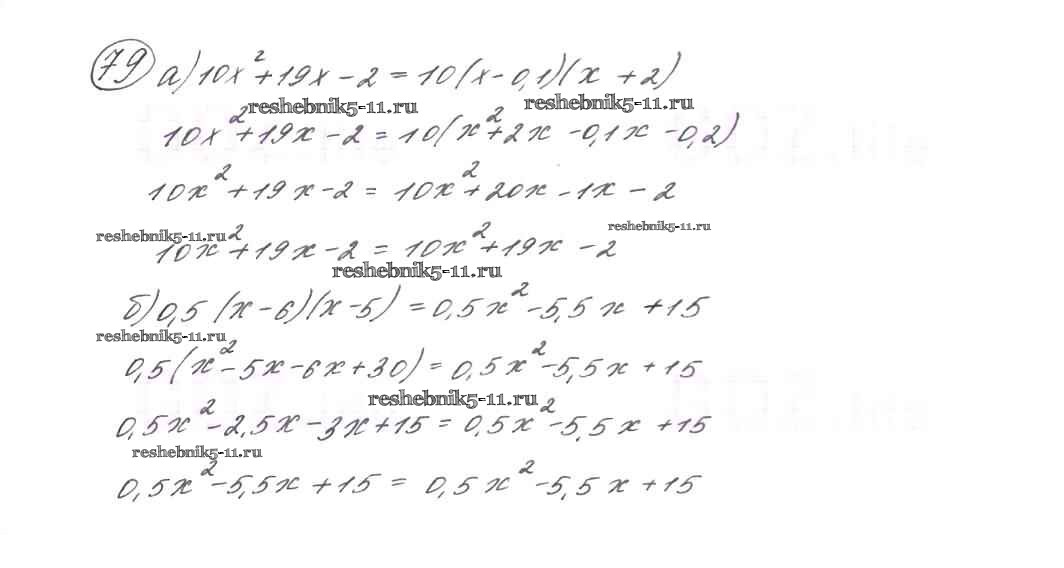 79 а) 10x² + 19x - 2 = 10(x - 0,1)(x + 2)
reshebnik5-11.ru reshebnik5-11.ru
10x² + 19x - 2 = 10(x² + 2x - 0,1x - 0,2)
10x² + 19x - 2 = 10x² + 20x - 1x - 2
reshebnik5-11.ru reshebnik5-11.ru
10x² + 19x - 2 = 10x² + 19x - 2
reshebnik5-11.ru
б) 0,5 (x - 6)(x - 5) = 0,5x² - 5,5x + 15
reshebnik5-11.ru
0,5(x² - 5x - 6x + 30) = 0,5x² - 5,5x + 15
reshebnik5-11.ru
0,5x² - 2,5x - 3x + 15 = 0,5x² - 5,5x + 15
reshebnik5-11.ru
0,5x² - 5,5x + 15 = 0,5x² - 5,5x + 15